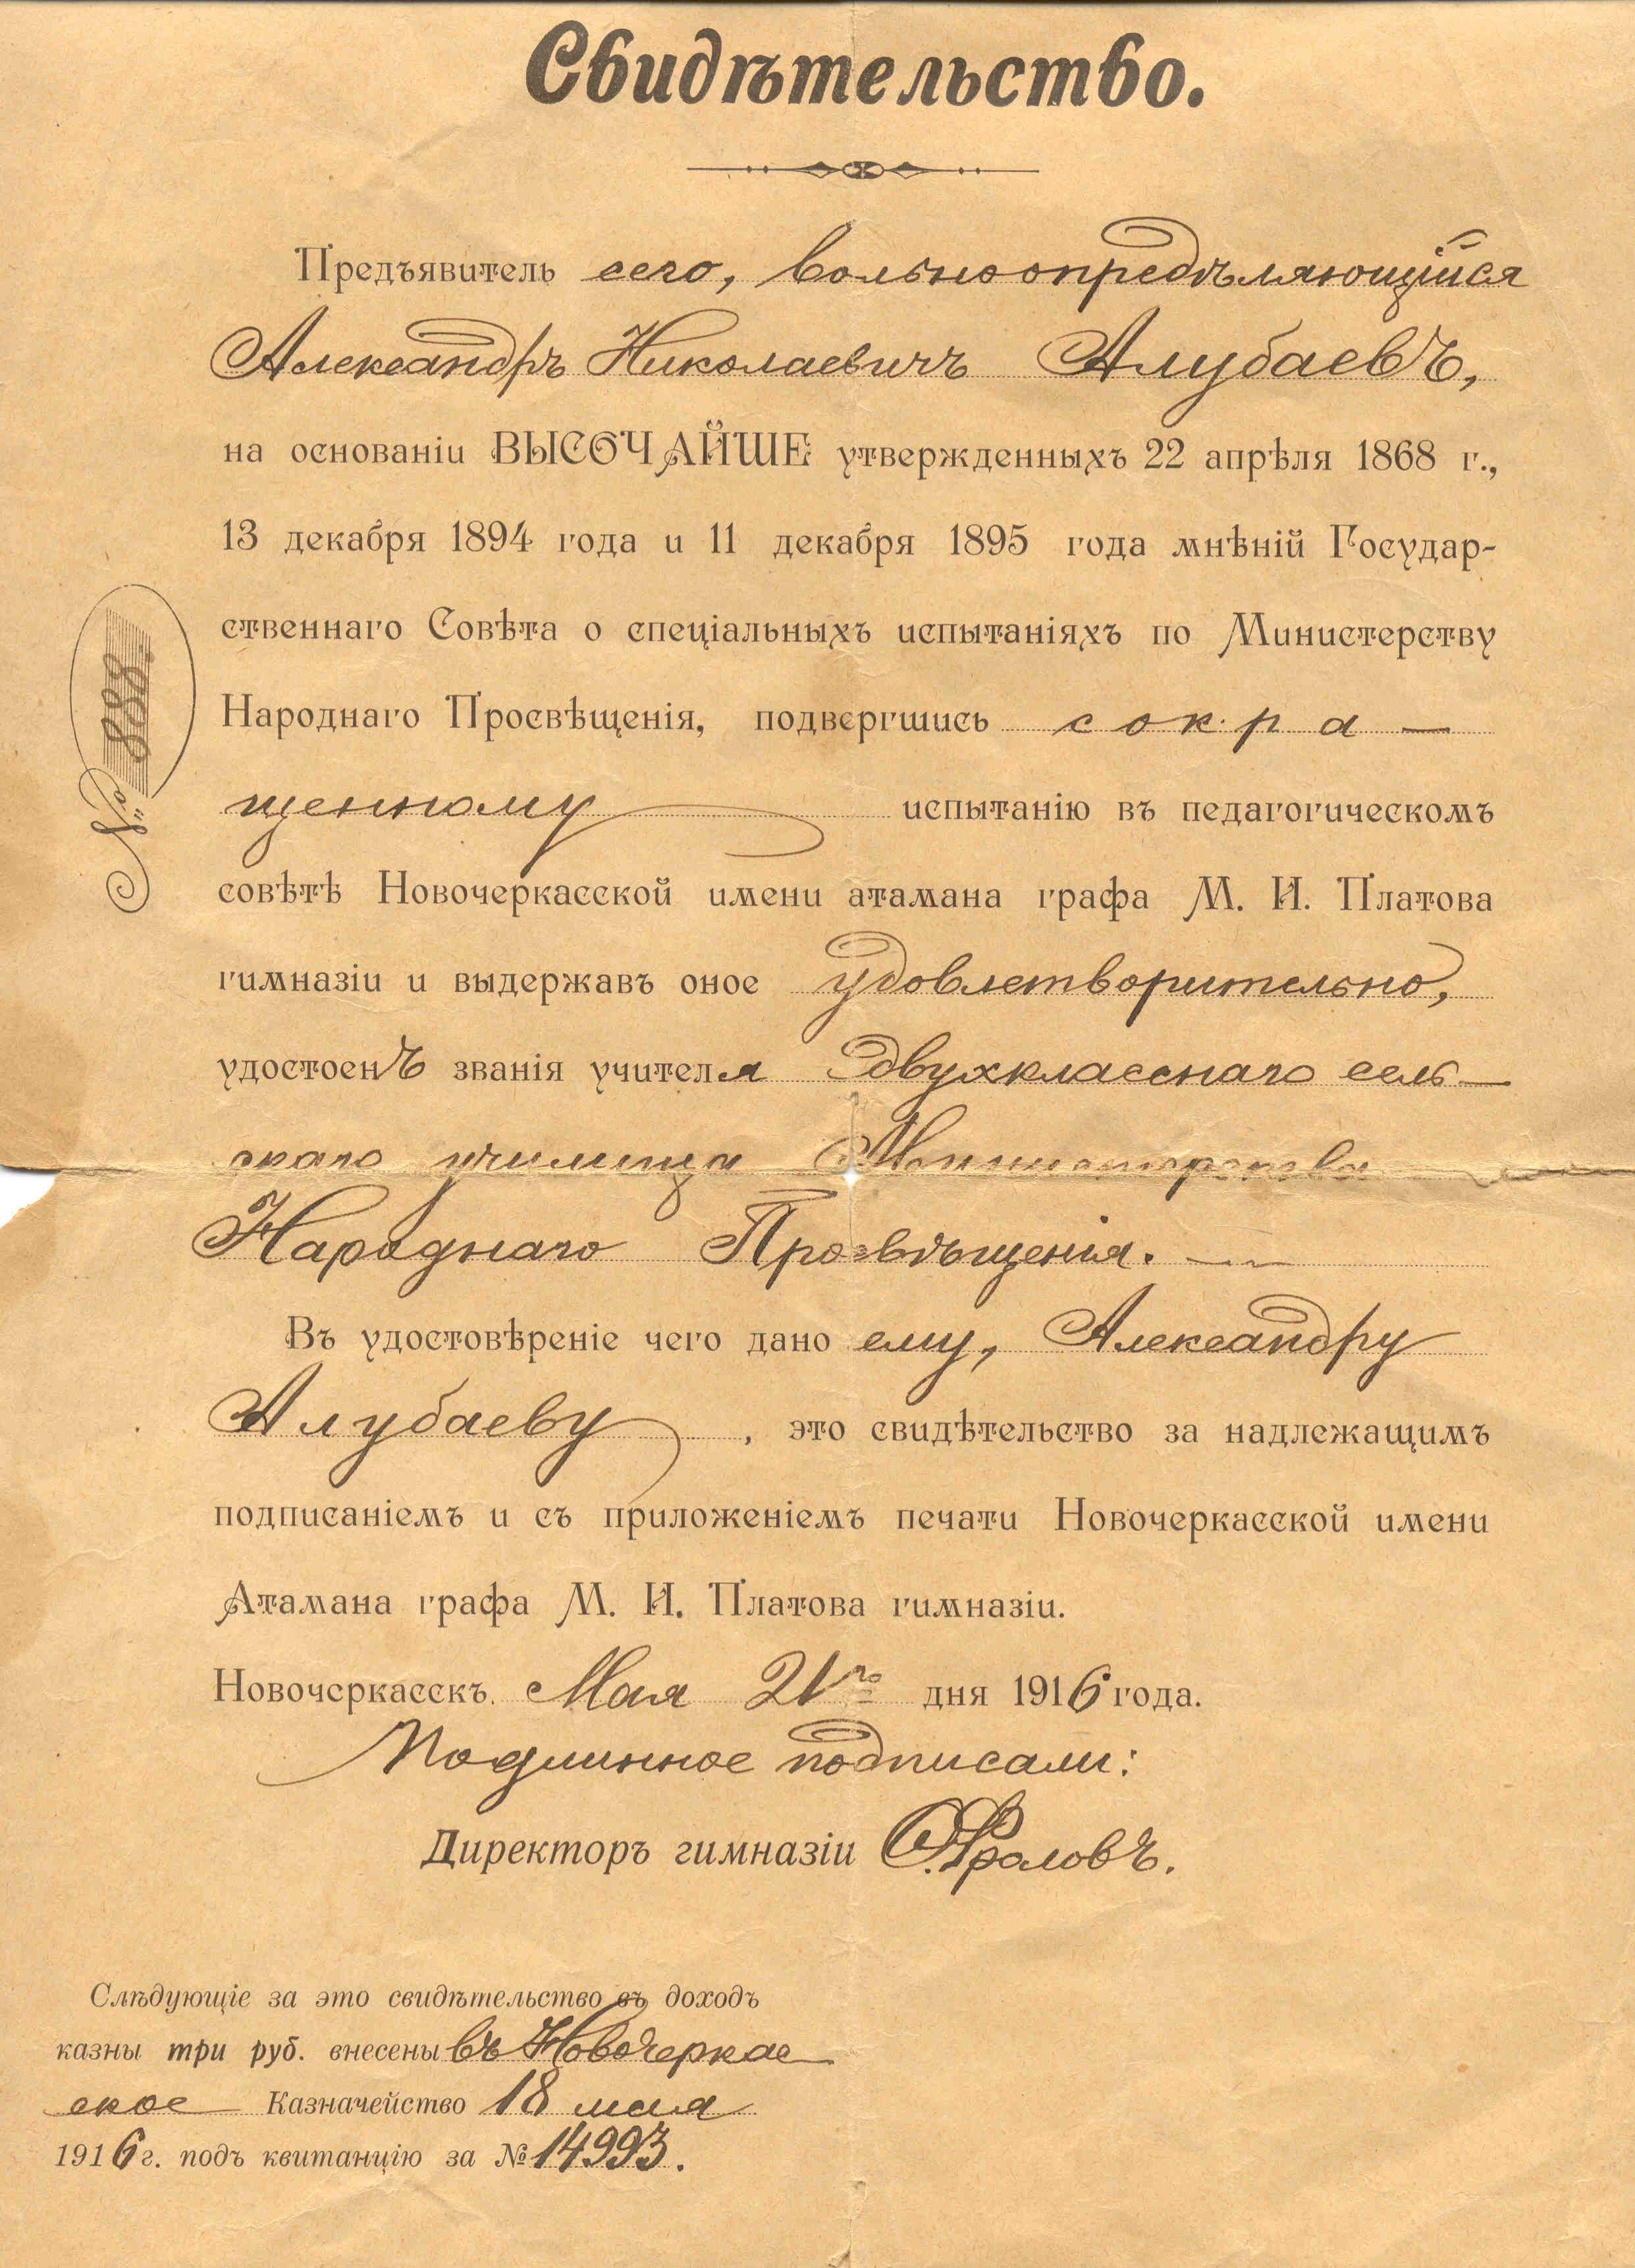 Свидѣтельство.
Предъявитель сего, вольноопредѣляющійся
Александръ Николаевичъ Алубаевъ,
на основаніи ВЫСОЧАЙШЕ утвержденныхъ 22 апрѣля 1868 г.,
13 декабря 1894 года и 11 декабря 1895 года мнѣній Государ-
ственнаго Совѣта о спеціальныхъ испытаніяхъ по Министерству
Народнаго Просвѣщенія, подвергшись сокра-
щенному испытанію въ педагогическомъ
совѣтѣ Новочеркасской имени атамана графа М. И. Платова
гимназіи и выдержавъ оное удовлетворительно,
удостоенъ званія учителя двухкласснаго сель-
скаго училища Министерства
Народнаго Просвѣщенія.
Въ удостовѣреніе чего дано ему, Александру
Алубаеву, это свидѣтельство за надлежащимъ
подписаніемъ и съ приложеніемъ печати Новочеркасской имени
Атамана графа М. И. Платова гимназіи.
Новочеркасскъ. Мая 21го дня 1916 года.
Подлинное подписали:
Директоръ гимназіи Ѳ. Фроловъ.
№ 888.
Слѣдующіе за это свидѣтельство въ доходъ
казны три руб. внесены въ Новочеркас-
ское Казначейство 18 мая
1916 г. подъ квитанцію за № 14993.